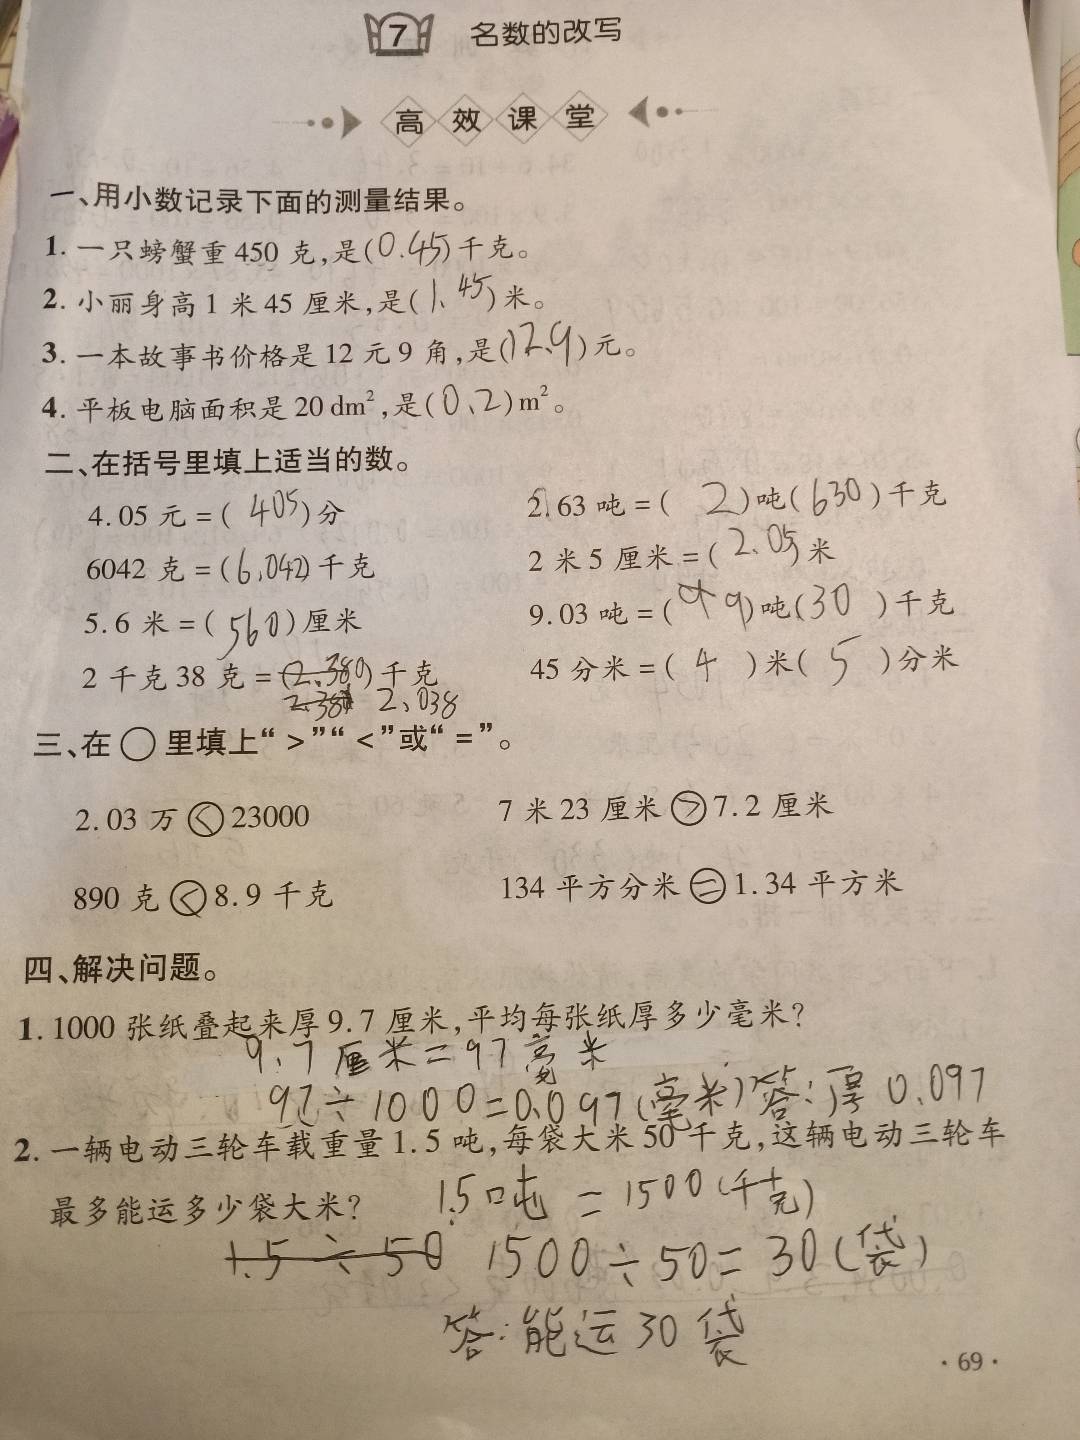 7 名数的改写
高效课堂
一、用小数记录下面的测量结果。
1. 一只螃蟹重 450 克,是(0.45)千克。
2. 小丽身高 1 米 45 厘米,是(1.45)米。
3. 一本故事书价格是 12 元 9 角,是(12.9)元。
4. 平板电脑面积是 20 dm²,是(0.2)m²。
二、在括号里填上适当的数。
4.05 元 = (405)分 2.63 吨 = (2)吨(630)千克
6042 克 = (6.042)千克 2 米 5 厘米 = (2.05)米
5.6 米 = (560)厘米 9.03 吨 = (9)吨(30)千克
2 千克 38 克 = (2.380)千克 45 分米 = (4)米(5)分米
2.38 2.038
三、在○里填上“>”“<”或“=”。
2.03 万 < 23000 7 米 23 厘米 > 7.2 厘米
890 克 < 8.9 千克 134 平方分米 = 1.34 平方米
四、解决问题。
1. 1000 张纸叠起来厚 9.7 厘米,平均每张纸厚多少毫米?
9.7厘米=97毫米
97÷1000=0.097(毫米)答:厚0.097
2. 一辆电动三轮车载重量 1.5 吨,每袋大米 50 千克,这辆电动三轮车
最多能运多少袋大米? 1.5吨=1500(千克)
1.5÷50 1500÷50=30(袋)
答:能运30袋
·69·